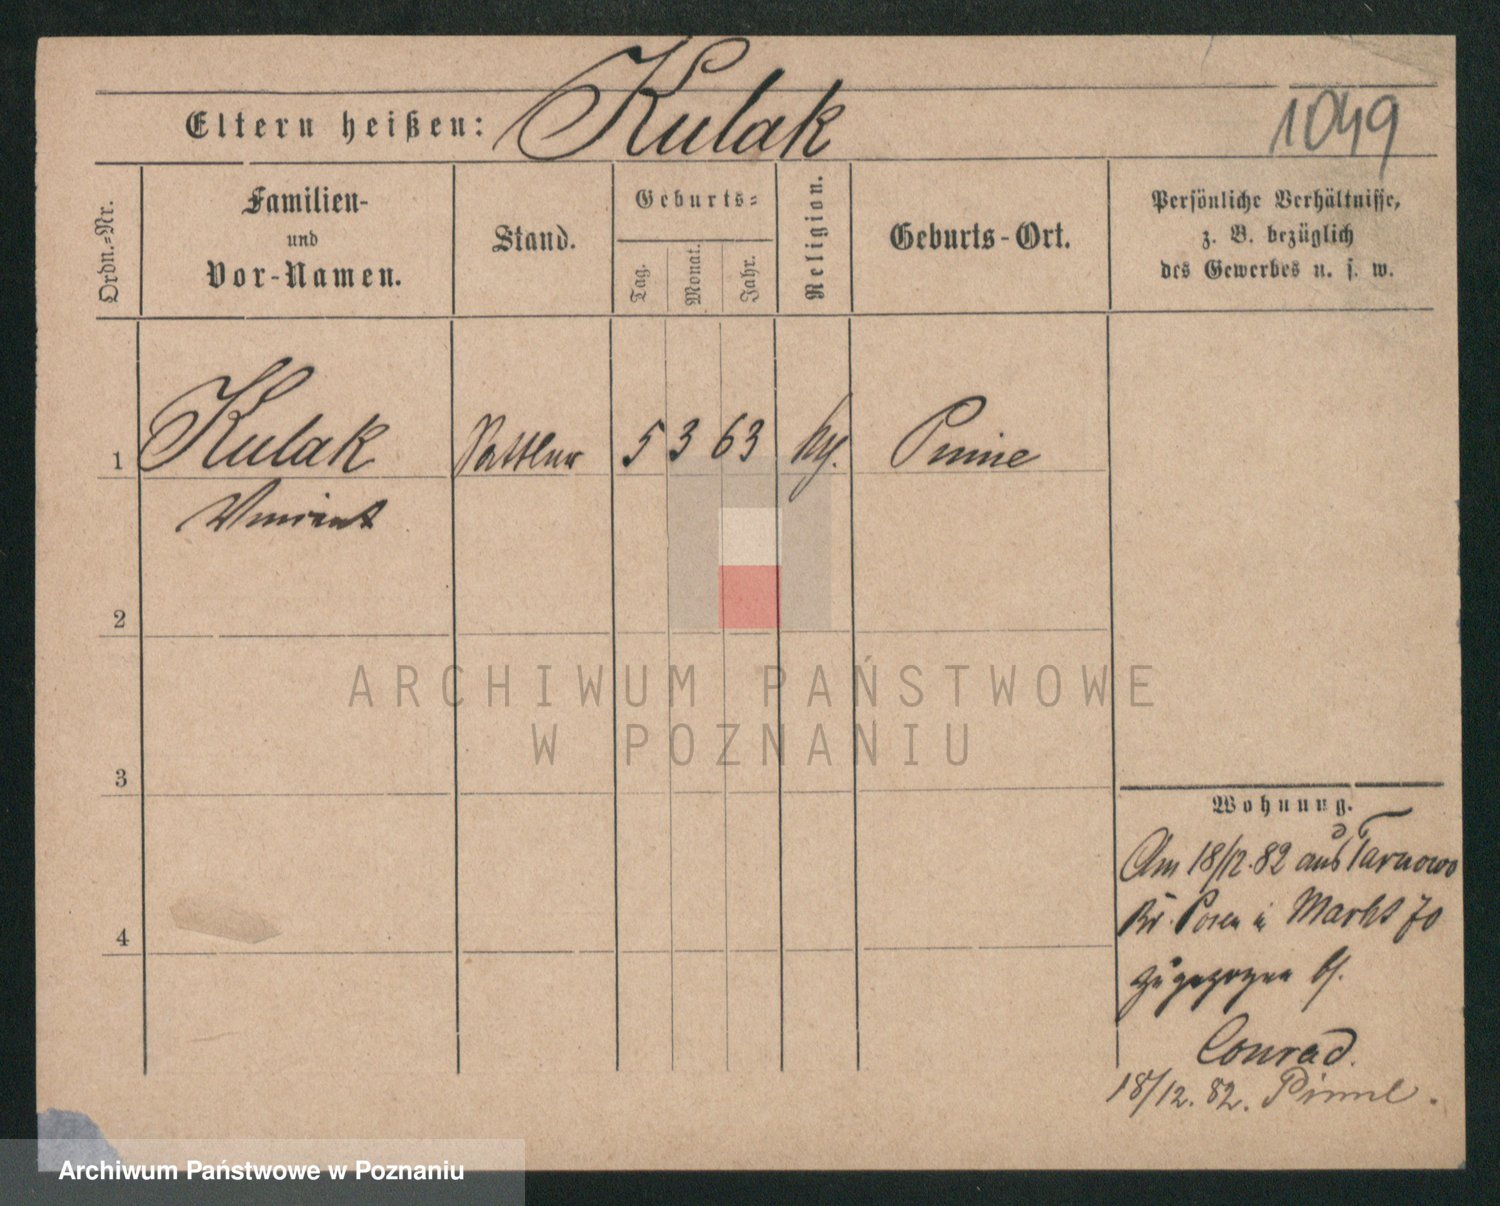 Eltern heißen: Kulak
1049
Ordn.=Nr.
Familien-
und
Vor-Namen.
Stand.
Geburts=
Tag.
Monat.
Jahr.
Religion.
Geburts-Ort.
Persönliche Verhältnisse,
z. B. bezüglich
des Gewerbes u. s. w.
1 Kulak Sattler 5 3 63 Pinne
Vincent
2
3
4
ARCHIWUM PAŃSTWOWE
W POZNANIU
Wohnung.
Am 18/12.82 aus Tarnowo
Kr. Posen Markt 70
zugezogen
Conrad.
18/12.82. Pinne.
Archiwum Państwowe w Poznaniu